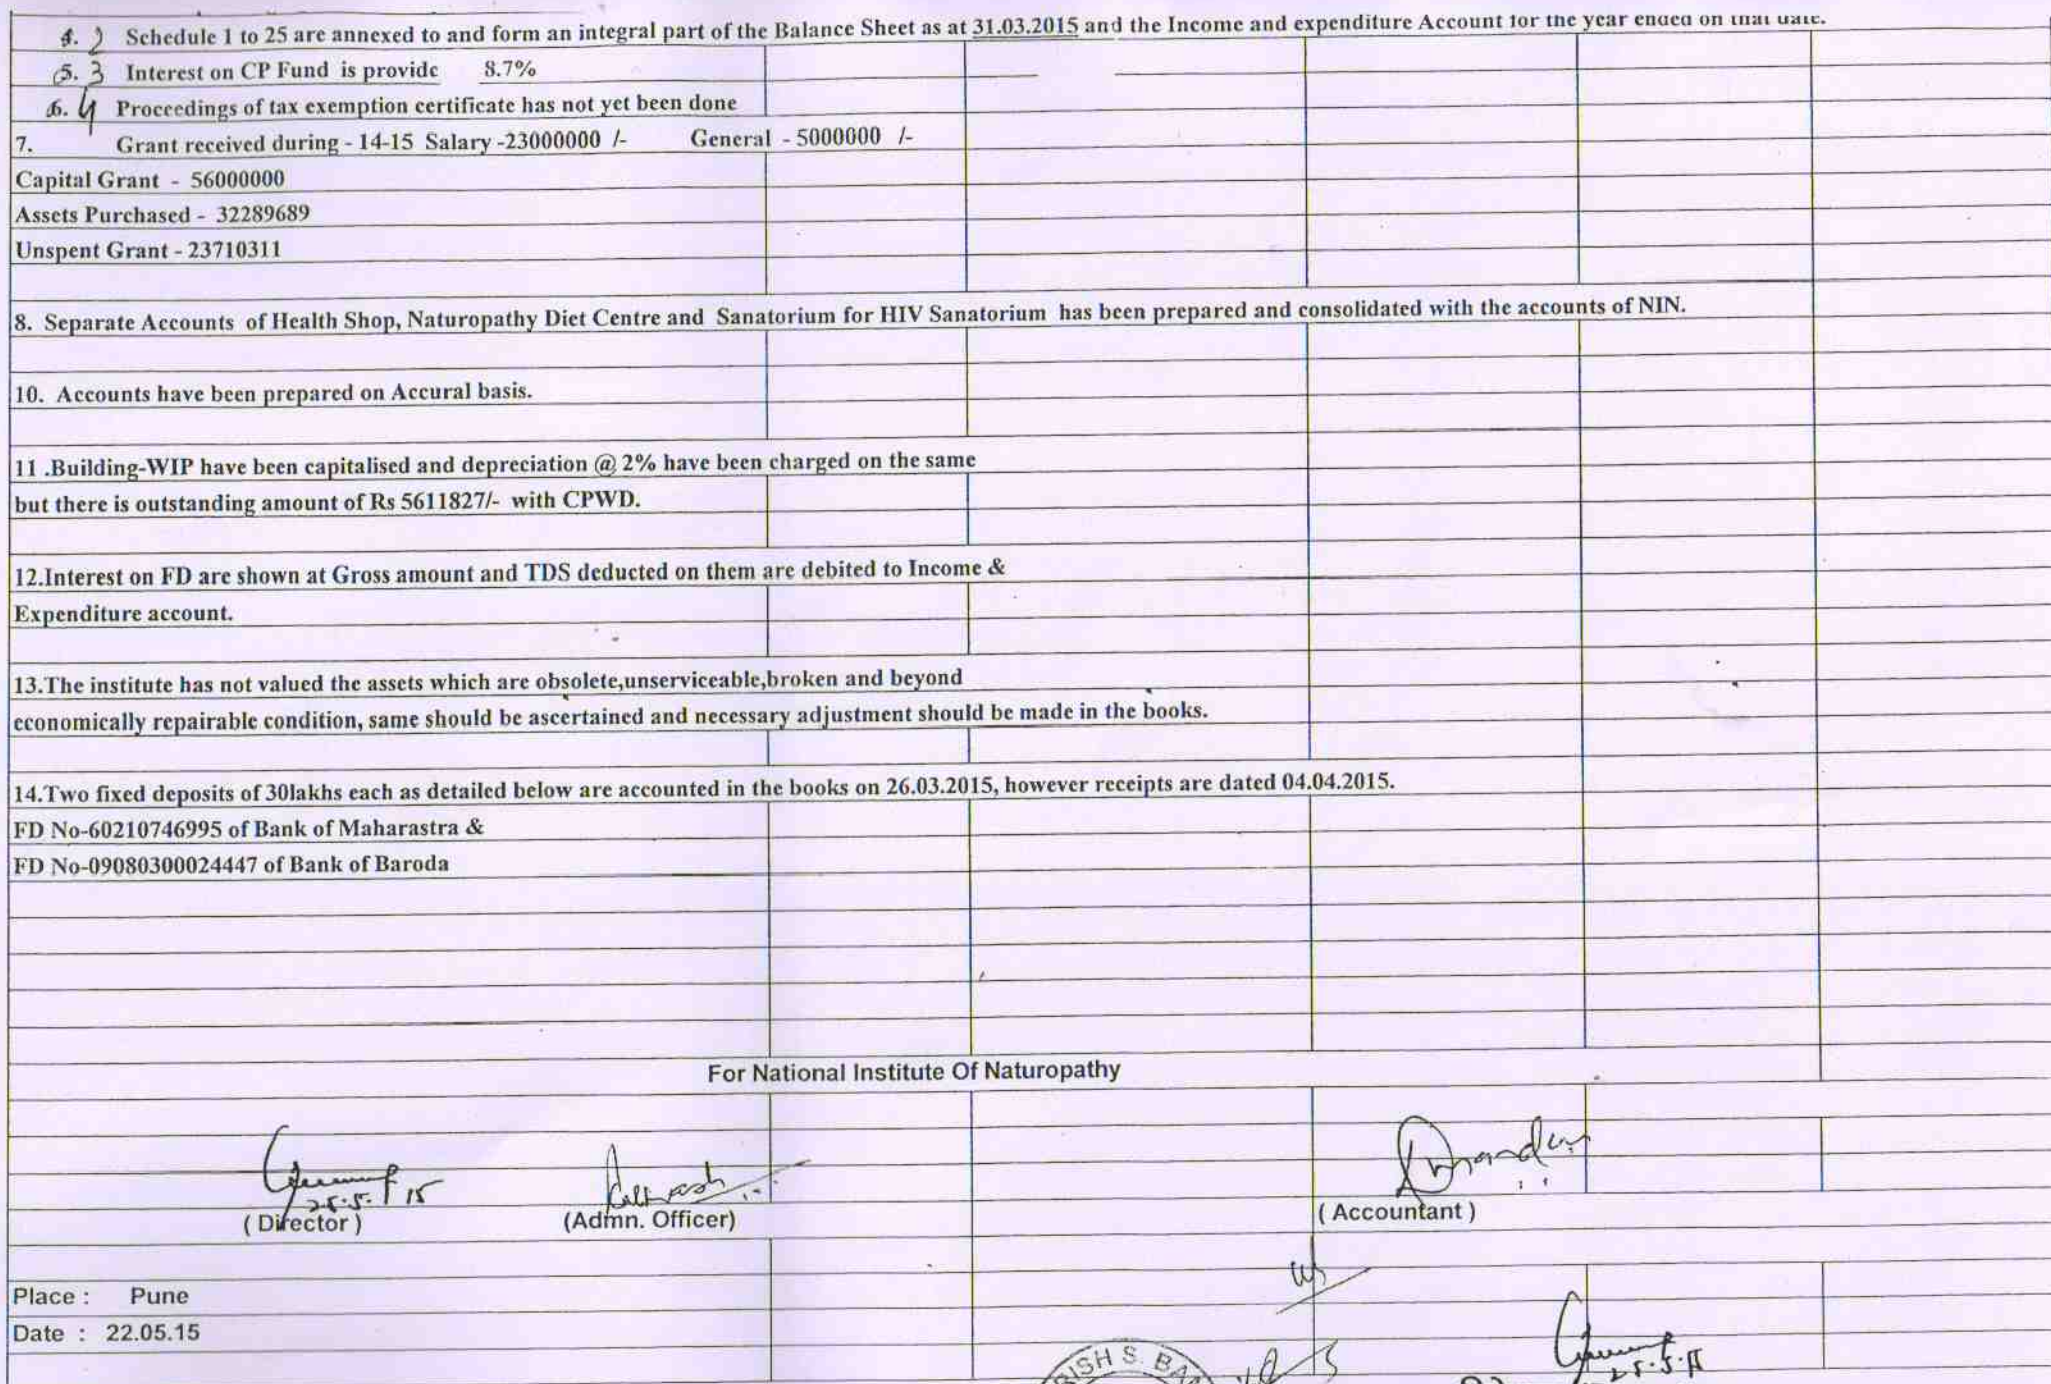 4. 2 Schedule 1 to 25 are annexed to and form an integral part of the Balance Sheet as at 31.03.2015 and the Income and expenditure Account for the year ended on that date.
5. 3 Interest on CP Fund is provide 8.7%
6. 4 Proceedings of tax exemption certificate has not yet been done
7. Grant received during - 14-15 Salary -23000000 /- General - 5000000 /-
Capital Grant - 56000000
Assets Purchased - 32289689
Unspent Grant - 23710311
8. Separate Accounts of Health Shop, Naturopathy Diet Centre and Sanatorium for HIV Sanatorium has been prepared and consolidated with the accounts of NIN.
10. Accounts have been prepared on Accural basis.
11 .Building-WIP have been capitalised and depreciation @ 2% have been charged on the same
but there is outstanding amount of Rs 5611827/- with CPWD.
12.Interest on FD are shown at Gross amount and TDS deducted on them are debited to Income &
Expenditure account.
13.The institute has not valued the assets which are obsolete,unserviceable,broken and beyond
economically repairable condition, same should be ascertained and necessary adjustment should be made in the books.
14.Two fixed deposits of 30lakhs each as detailed below are accounted in the books on 26.03.2015, however receipts are dated 04.04.2015.
FD No-60210746995 of Bank of Maharastra &
FD No-09080300024447 of Bank of Baroda
For National Institute Of Naturopathy
25.5.15
( Director ) (Admn. Officer) ( Accountant )
Place : Pune
Date : 22.05.15
25.5.15